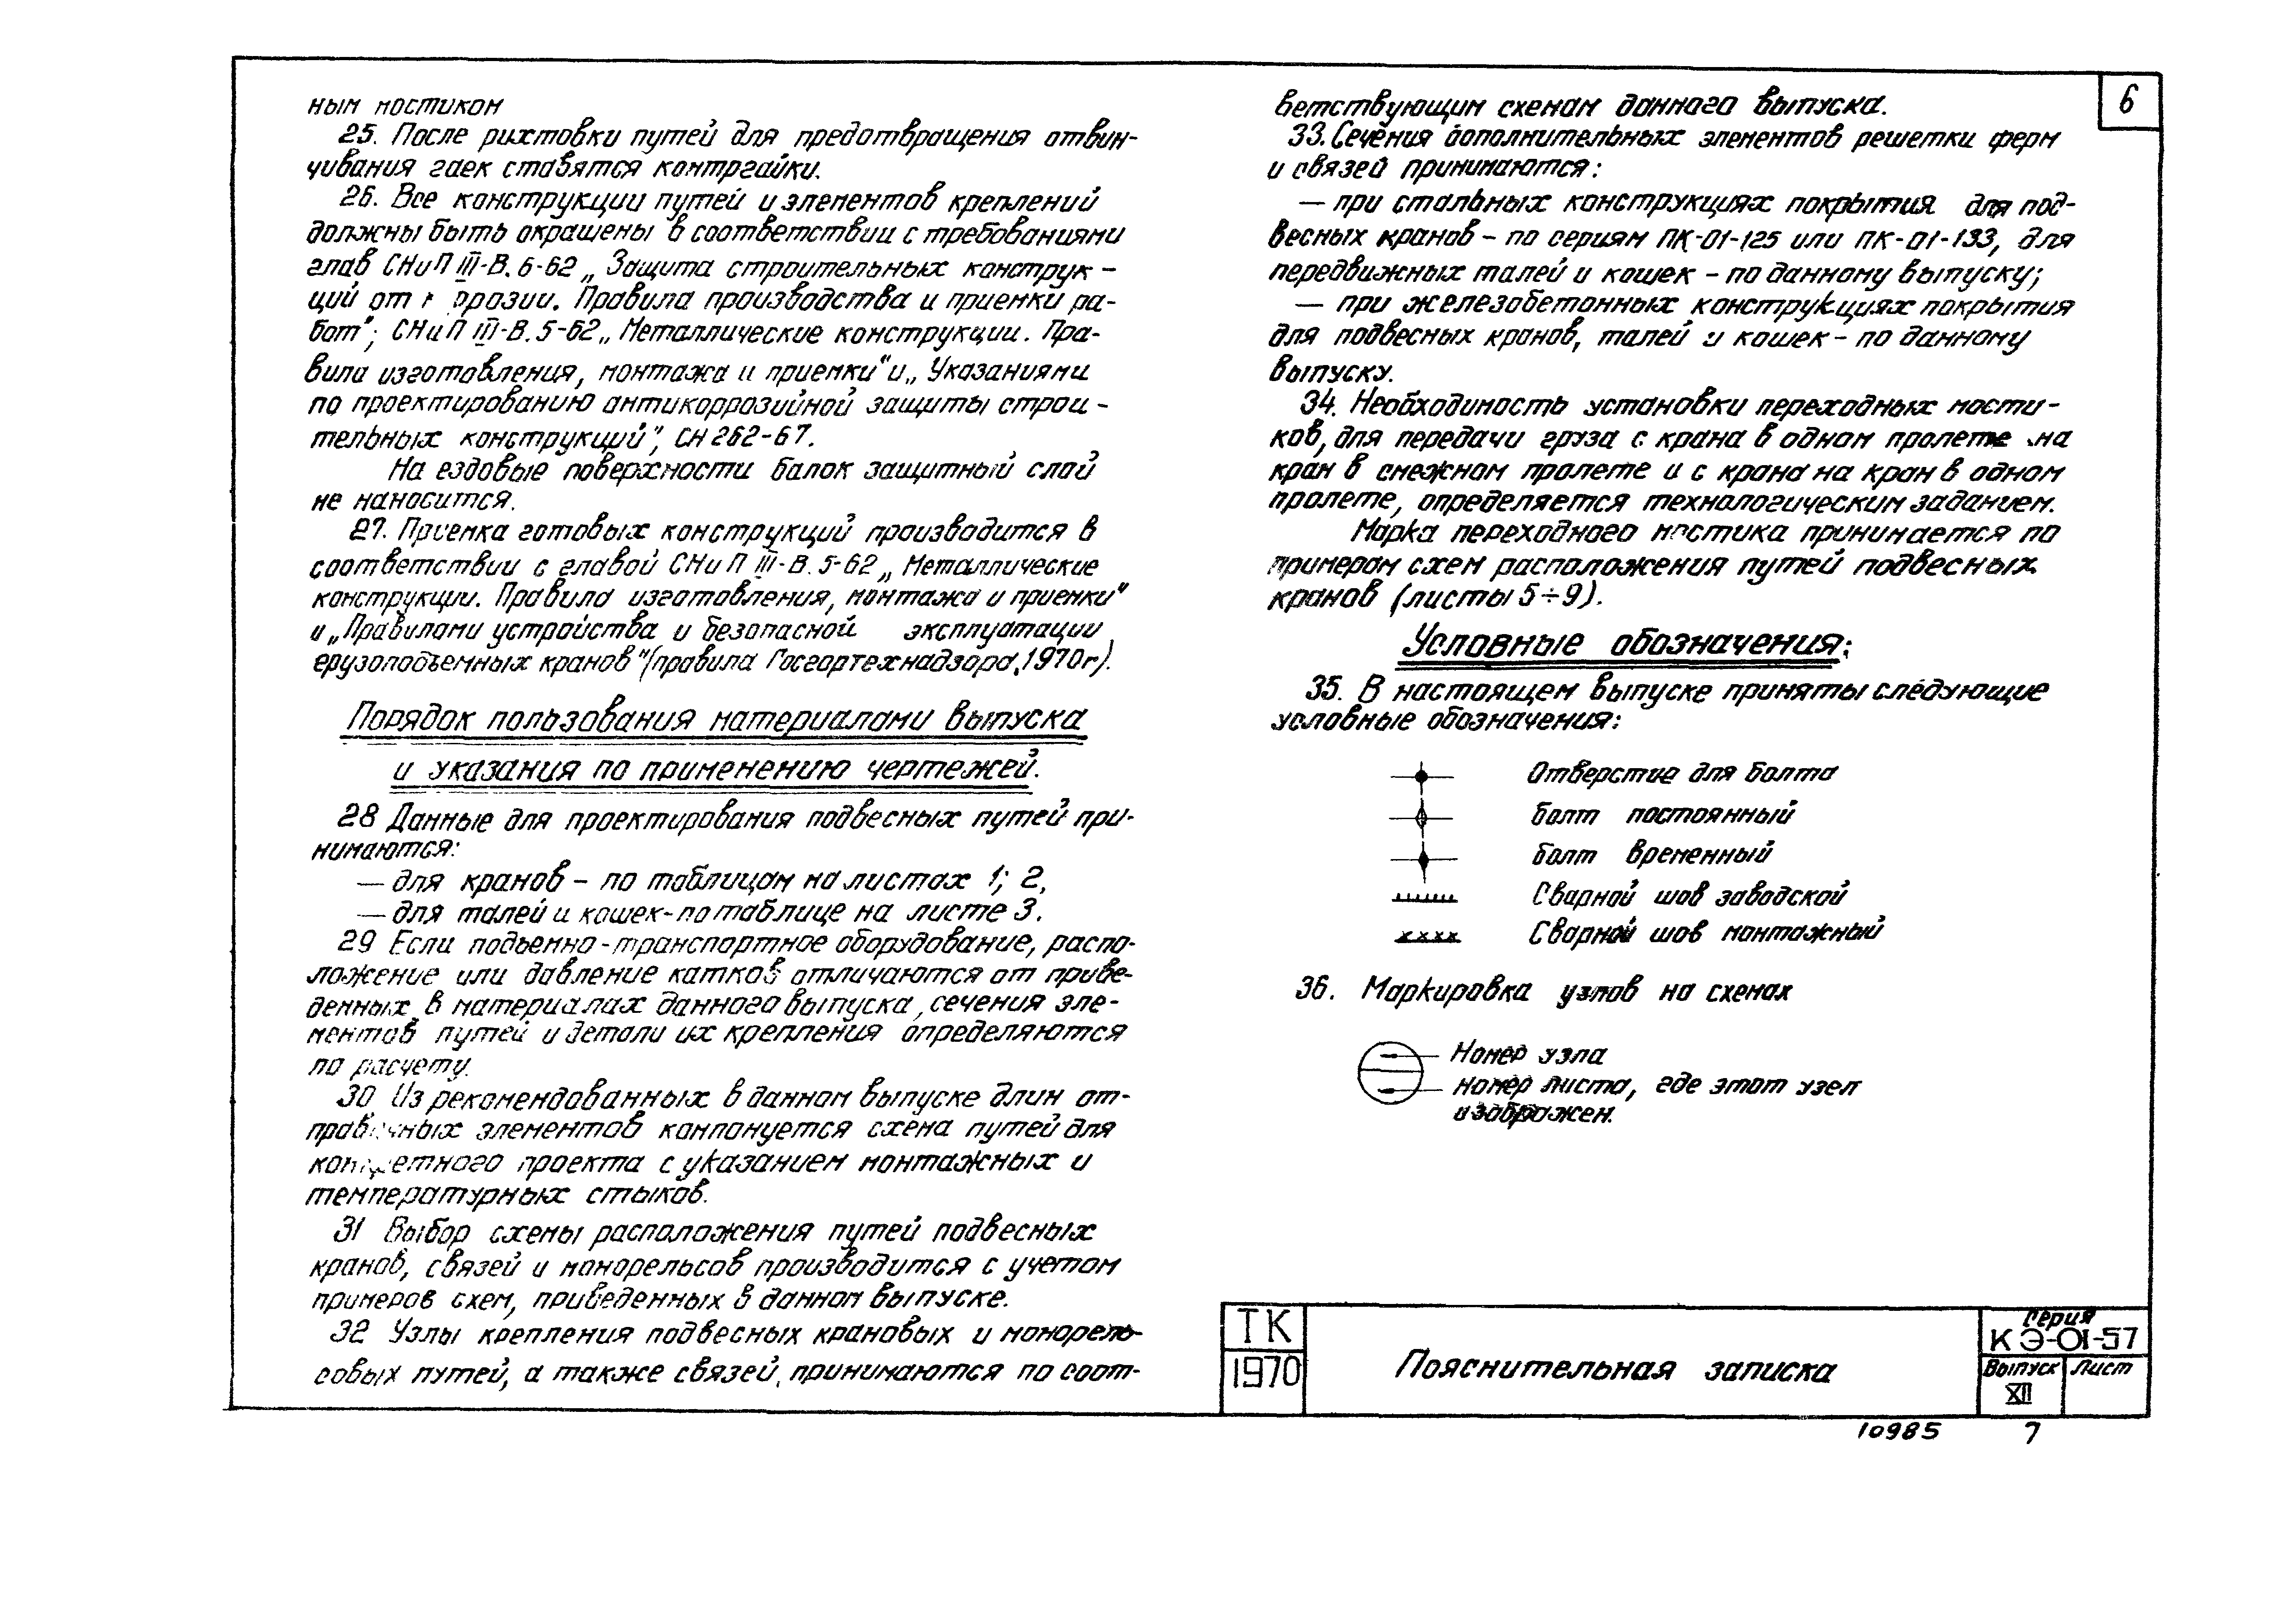 ным мостиком
25. После рихтовки путей для предотвращения отвин-
чивания гаек ставятся контргайки.
26. Все конструкции путей и элементов креплений
должны быть окрашены в соответствии с требованиями
глав СНиП III-В. 6-62 „Защита строительных конструк-
ций от коррозии. Правила производства и приемки ра-
бот"; СНиП III-В. 5-62 „Металлические конструкции. Пра-
вила изготовления, монтажа и приемки" и „Указаниями
по проектированию антикоррозийной защиты строи-
тельных конструкций", СН 262-67.
На ездовые поверхности балок защитный слой
не наносится.
27. Приемка готовых конструкций производится в
соответствии с главой СНиП III-В. 5-62 „Металлические
конструкции. Правила изготовления, монтажа и приемки"
и „Правилами устройства и безопасной эксплуатации
грузоподъемных кранов" (правила Госгортехнадзора, 1970г).
Порядок пользования материалами выпуска
и указания по применению чертежей.
28 Данные для проектирования подвесных путей при-
нимаются:
— для кранов – по таблицам на листах 1; 2,
— для талей и кошек-по таблице на листе 3.
29 Если подъемно-транспортное оборудование, распо-
ложение или давление катков отличаются от приве-
денных в материалах данного выпуска, сечения эле-
ментов путей и детали их крепления определяются
по расчету.
30 Из рекомендованных в данном выпуске длин от-
правочных элементов компонуется схема путей для
конкретного проекта с указанием монтажных и
температурных стыков.
31 Выбор схемы расположения путей подвесных
кранов, связей и монорельсов производится с учетом
примеров схем, приведенных в данном выпуске.
32 Узлы крепления подвесных крановых и монорель-
совых путей, а также связей, принимаются по соот-
ветствующим схемам данного выпуска.
33. Сечения дополнительных элементов решетки ферм
и связей принимаются:
— при стальных конструкциях покрытия для под-
весных кранов – по сериям ПК-01-125 или ПК-01-133, для
передвижных талей и кошек – по данному выпуску;
— при железобетонных конструкциях покрытия
для подвесных кранов, талей и кошек – по данному
выпуску.
34. Необходимость установки переходных мости-
ков, для передачи груза с крана в одном пролете на
кран в смежном пролете и с крана на кран в одном
пролете, определяется технологическим заданием.
Марка переходного мостика принимается по
примерам схем расположения путей подвесных
кранов (листы 5÷9).
Условные обозначения:
35. В настоящем выпуске приняты следующие
условные обозначения:
Отверстие для болта
болт постоянный
болт временный
Сварной шов заводской
Сварной шов монтажный
36. Маркировка узлов на схемах
Номер узла
номер листа, где этот узел
изображен.
6
ТК
1970
Пояснительная записка
Серия
КЭ-01-57
Выпуск Лист
XII
10985 7